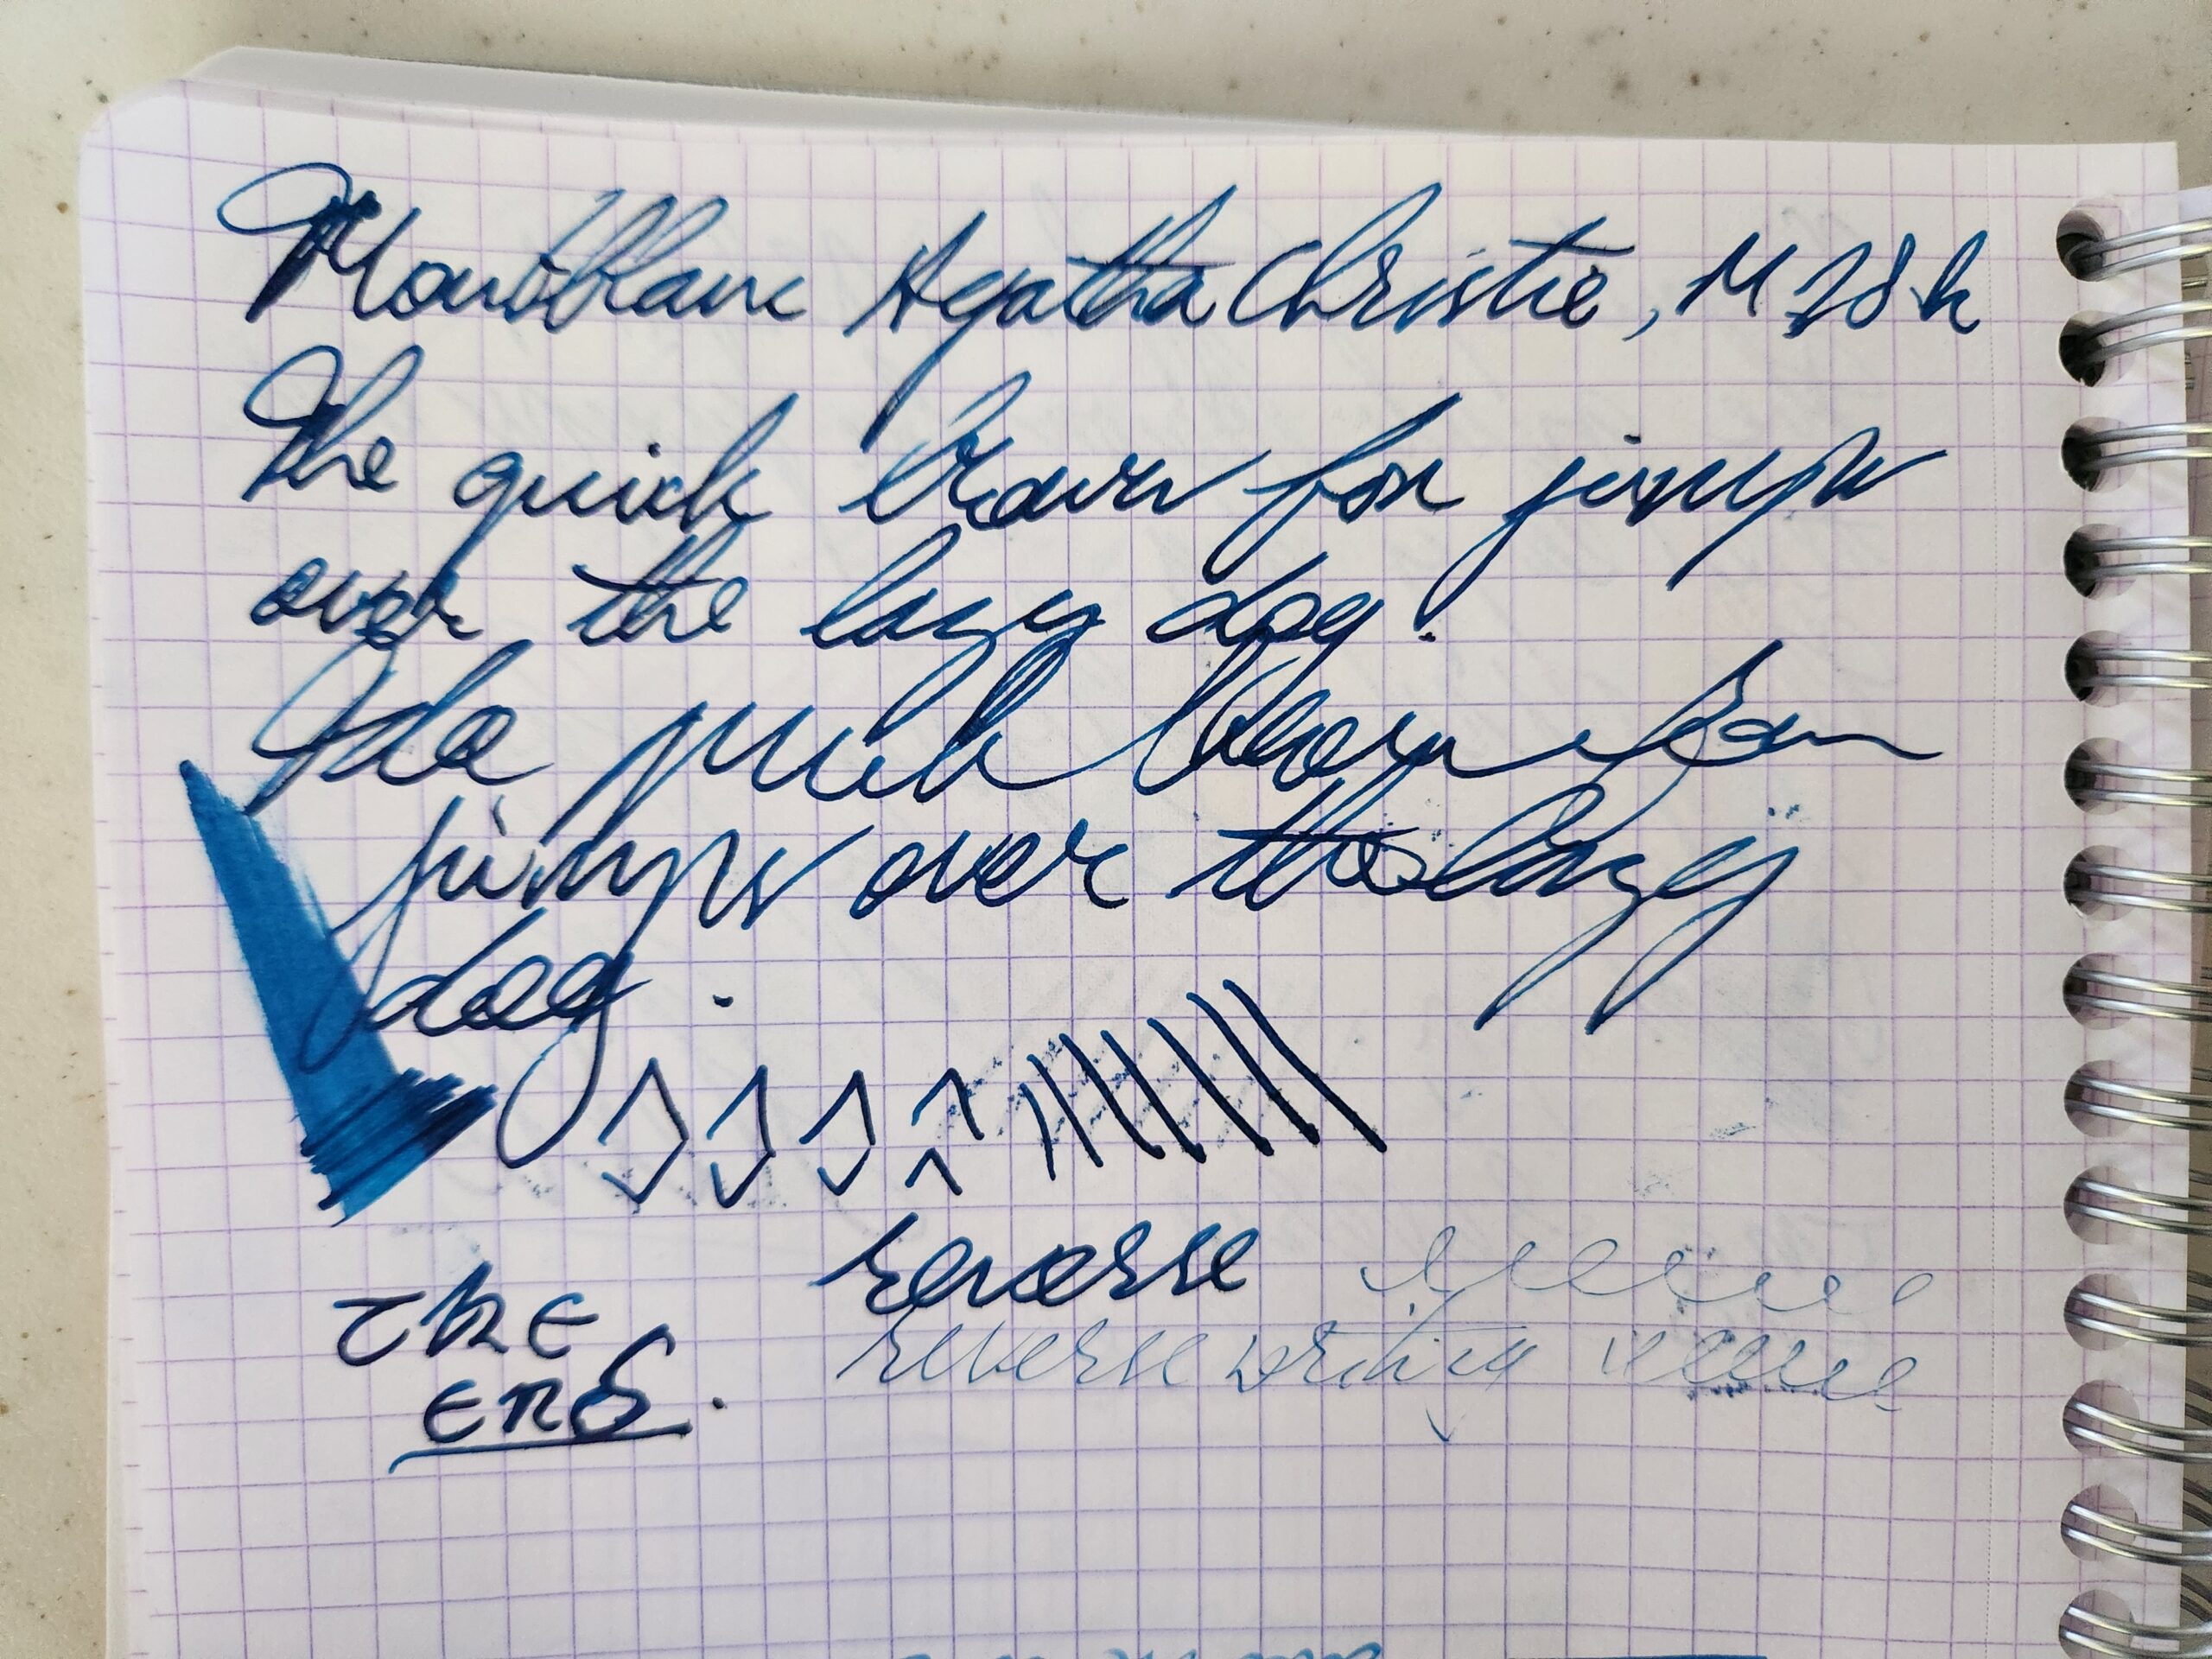 Montblanc Agatha Christie, M 18k
The quick brown fox jumps
over the lazy dog.
The quick brown fox
jumps over the lazy
dog.
reverse
THE
reverse writing
END.